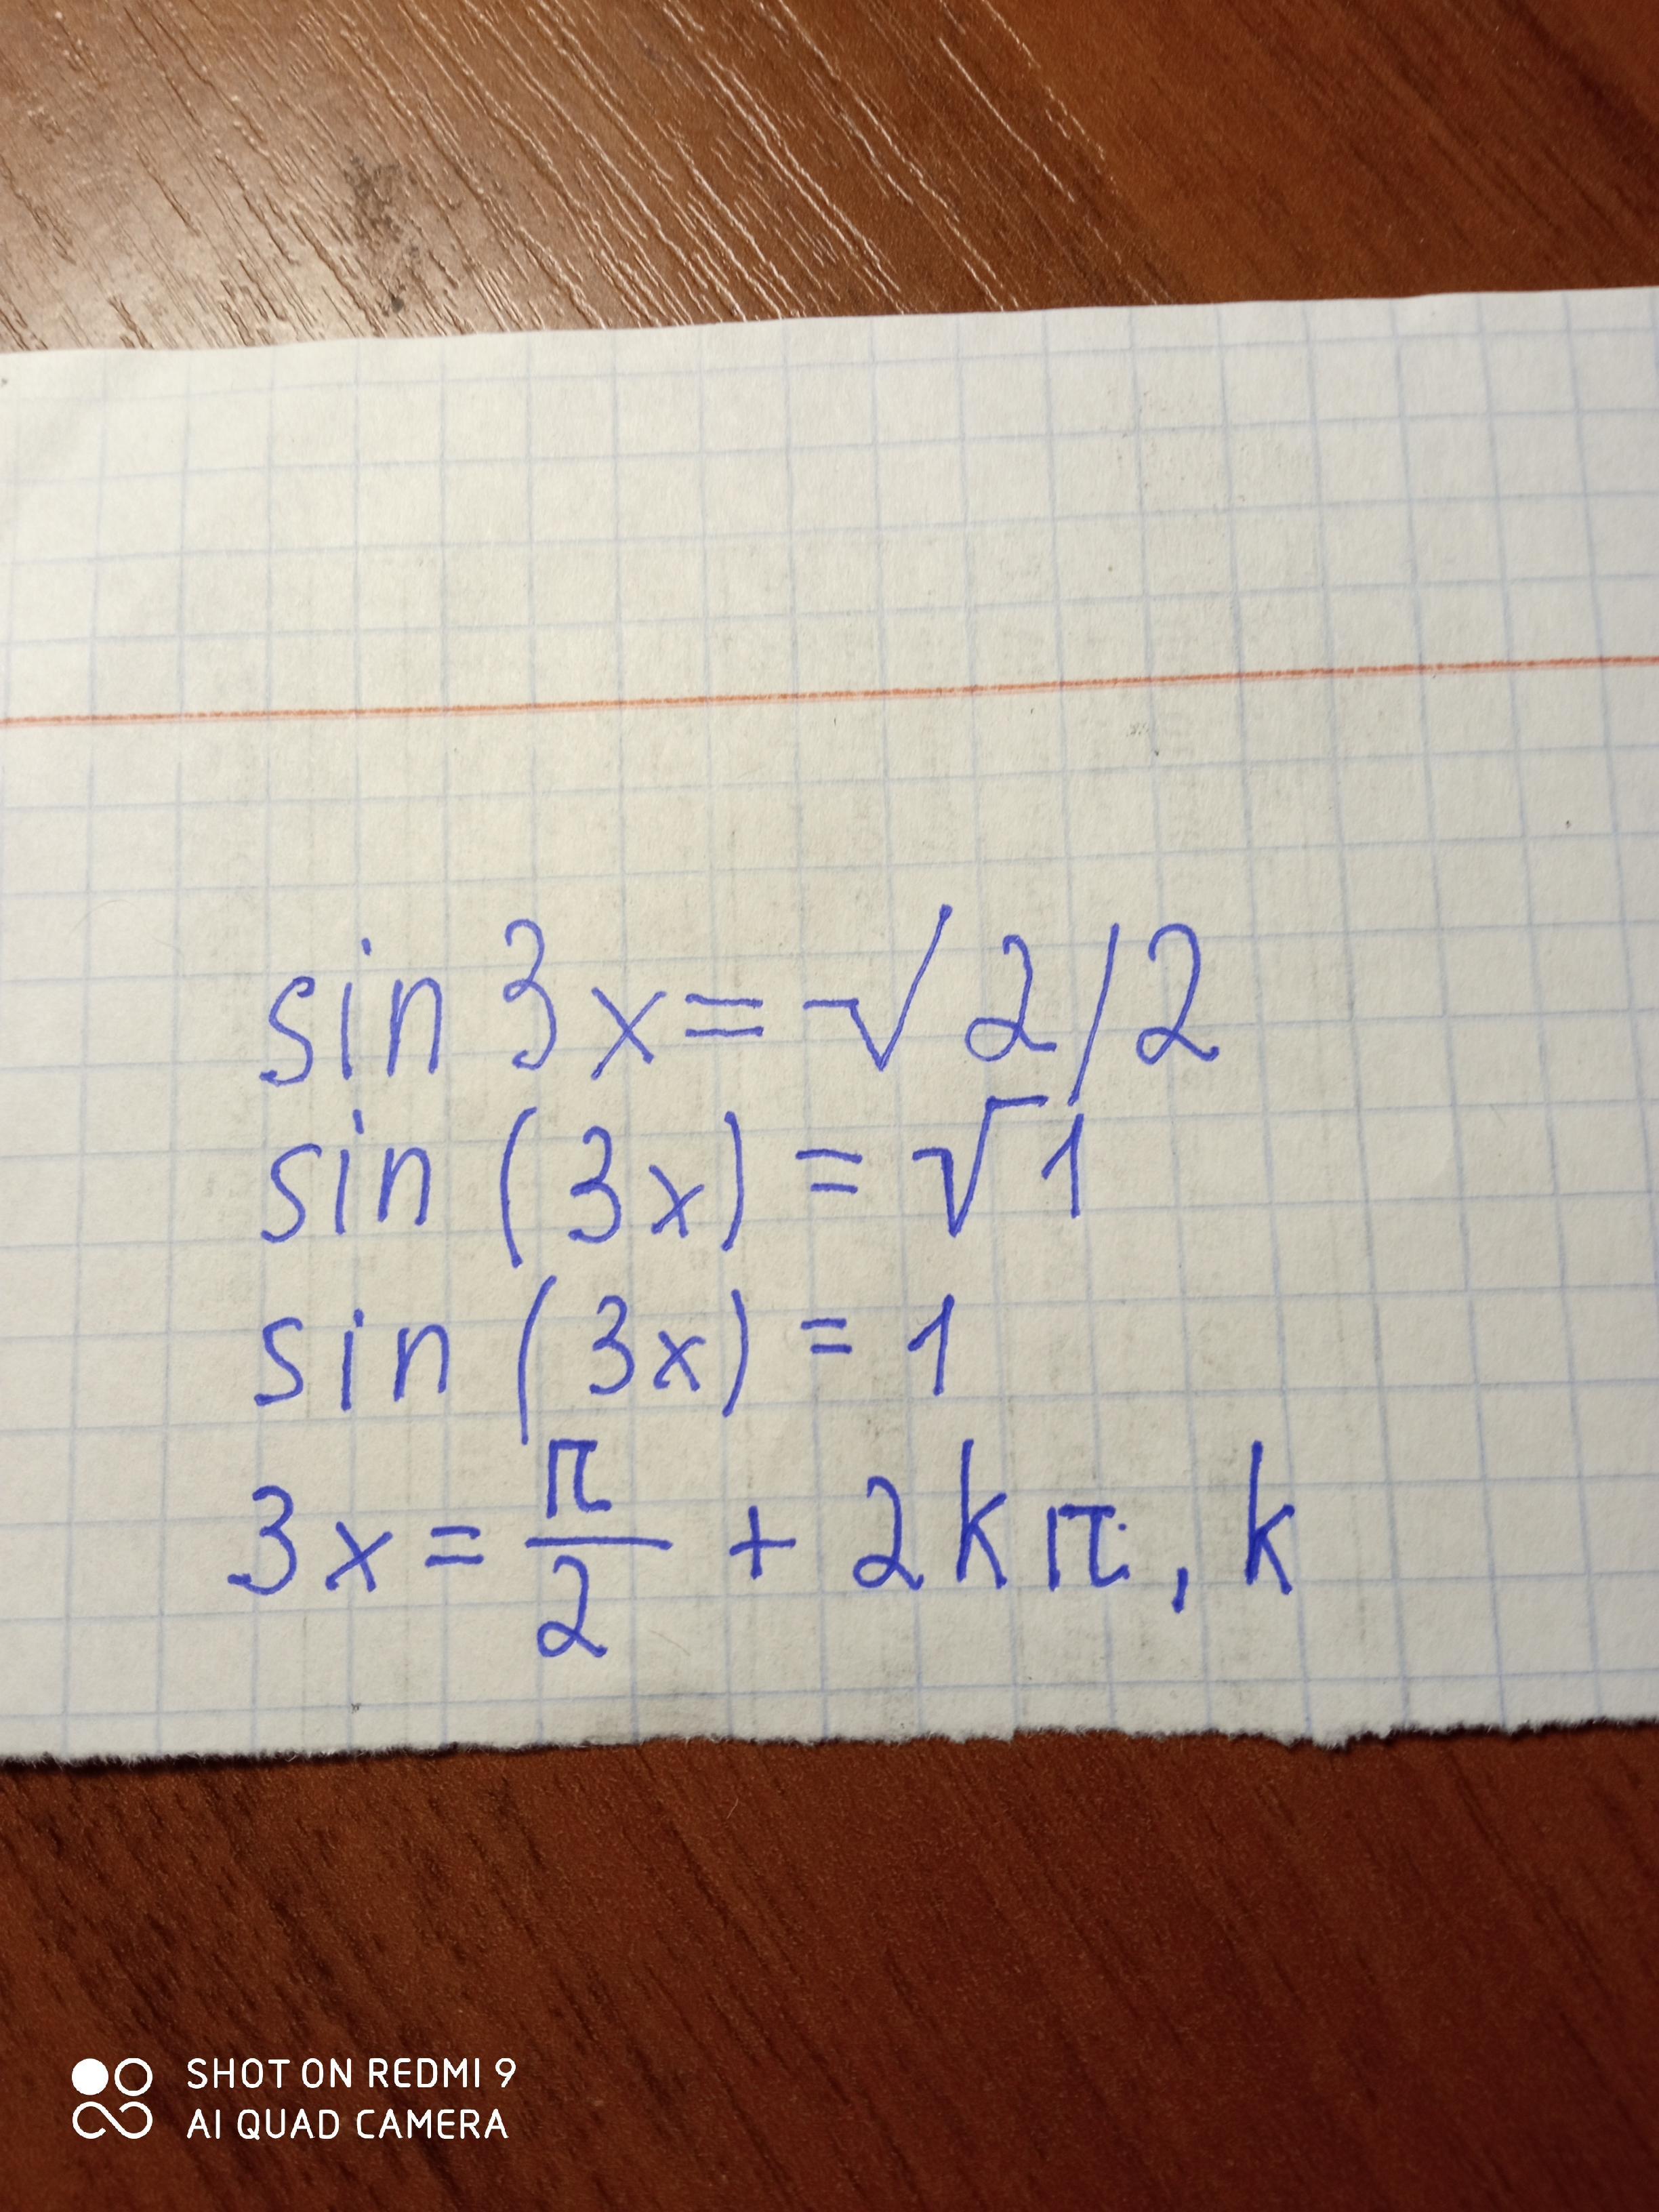 sin 3x = √2/2
sin (3x) = √1
sin (3x) = 1
3x = π/2 + 2kπ, k
SHOT ON REDMI 9
AI QUAD CAMERA